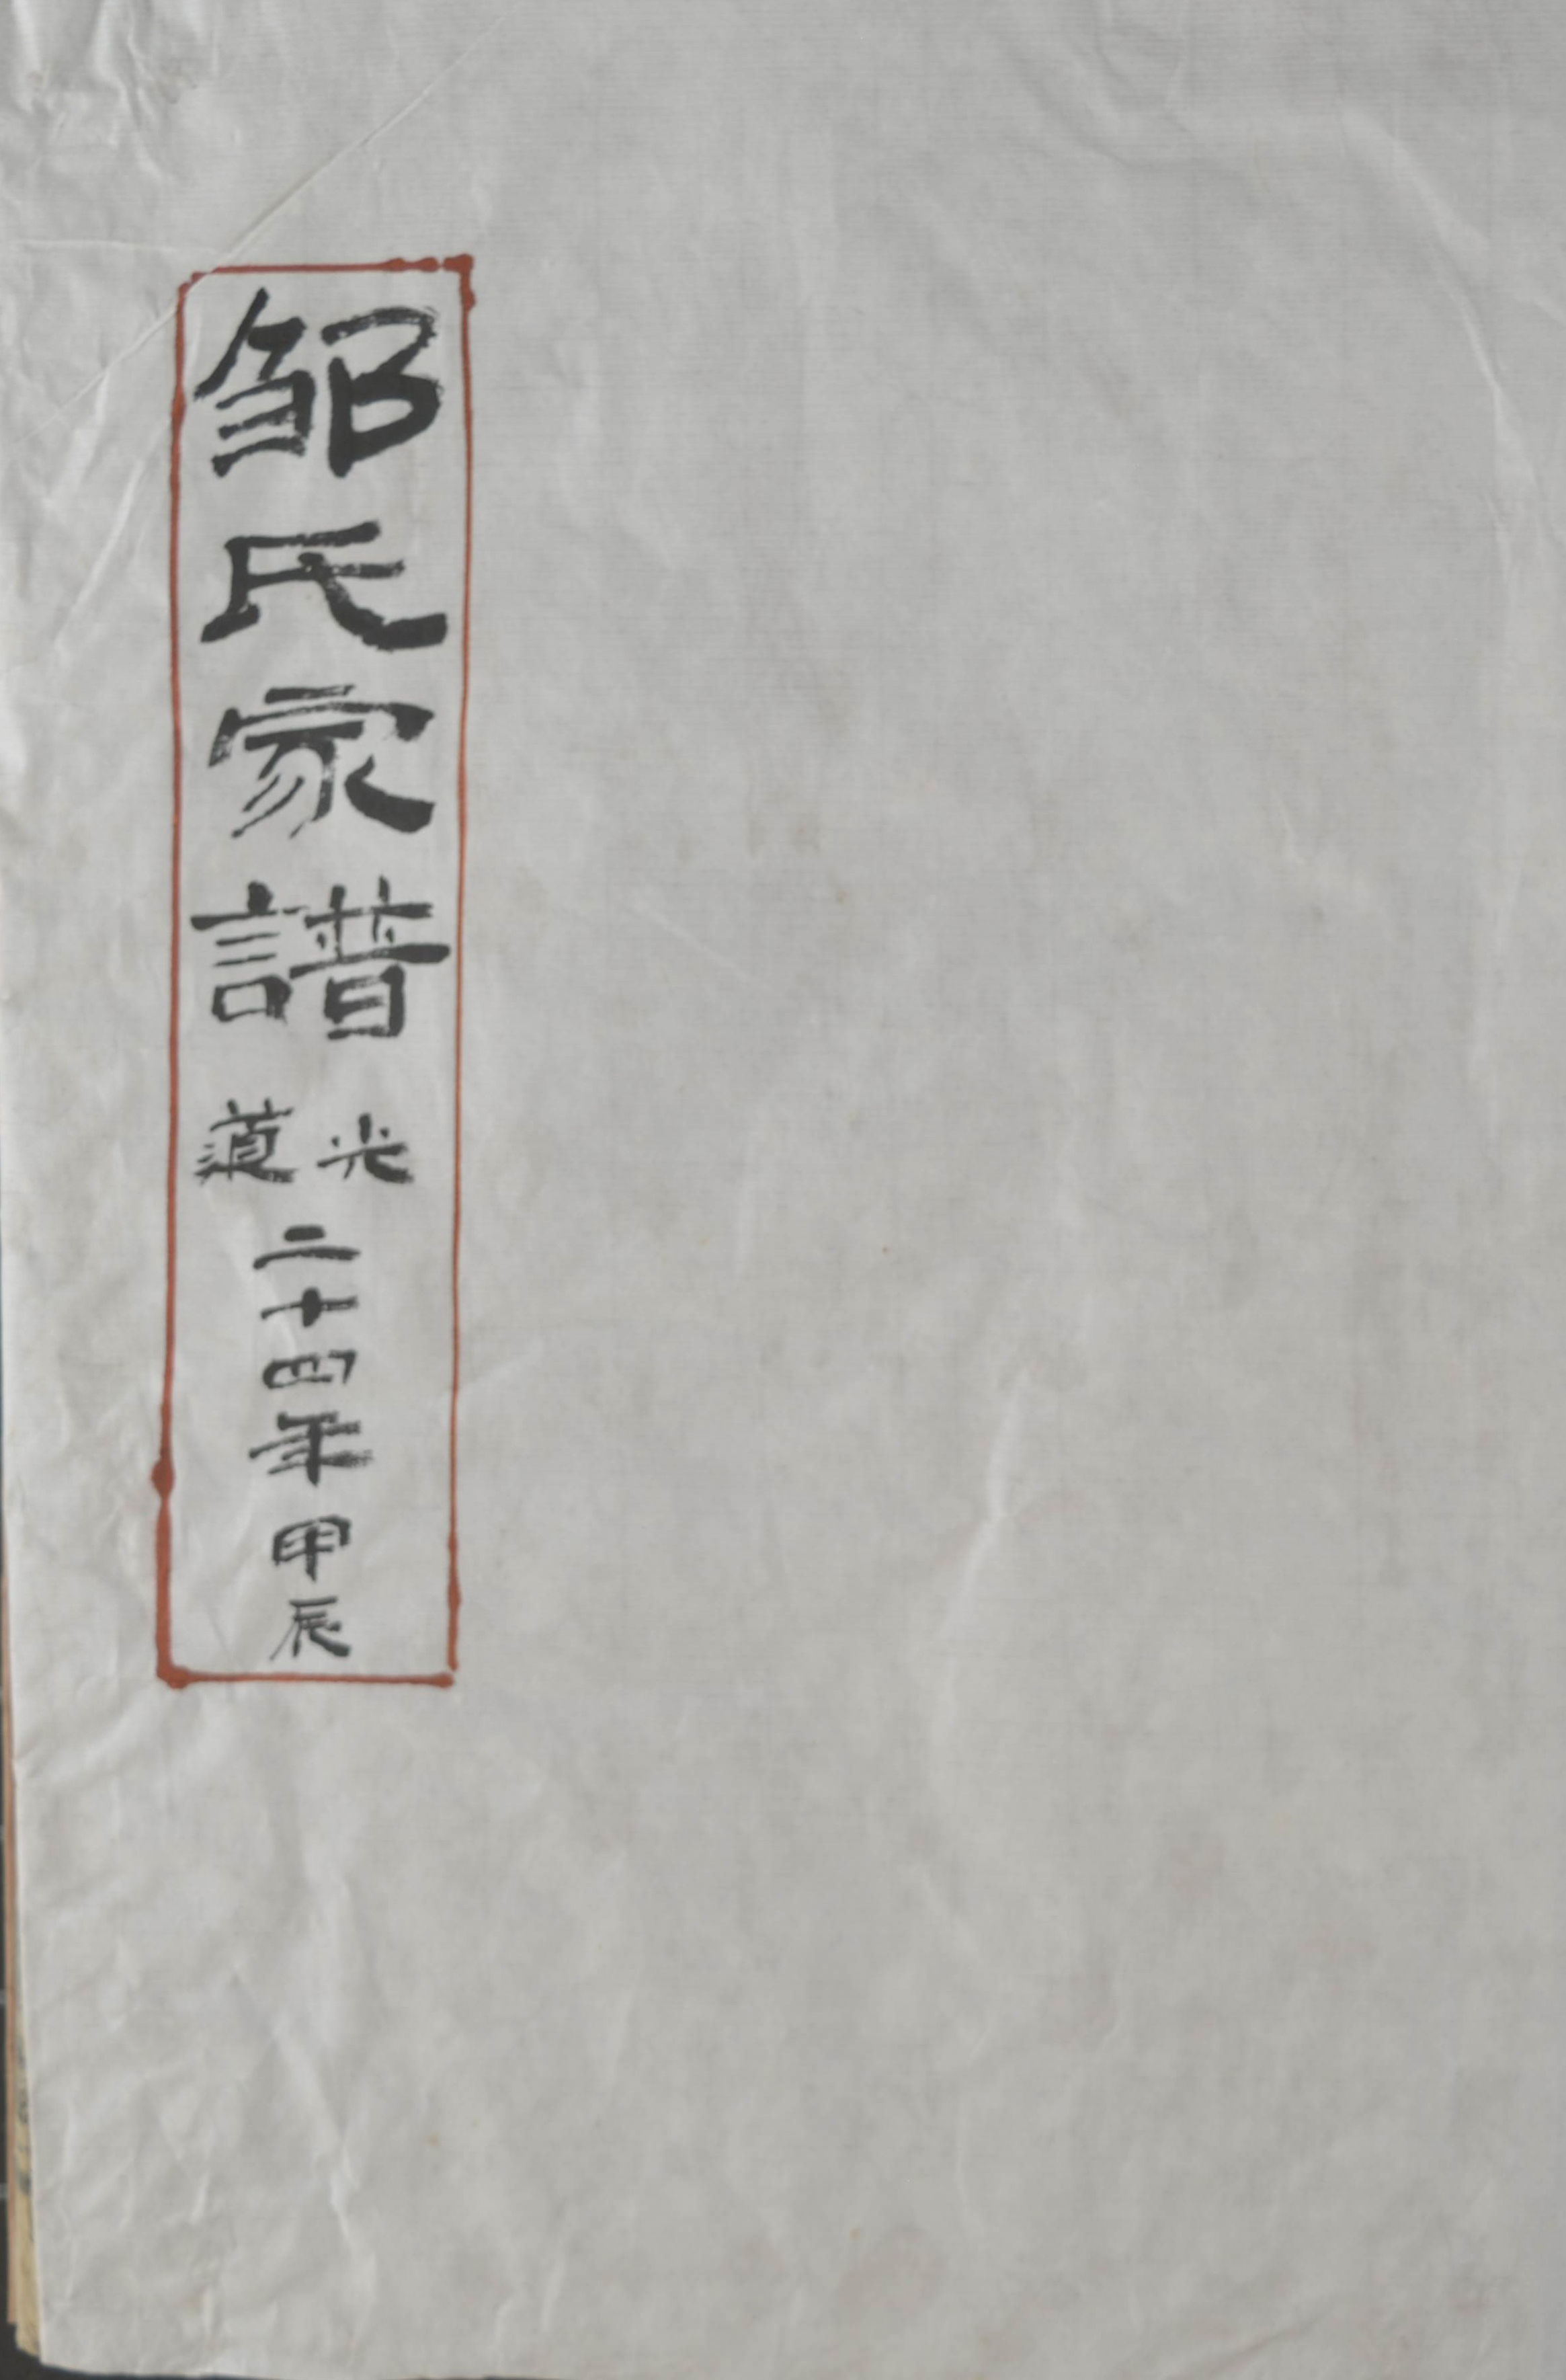 邹氏家譜
道光
二十四年甲辰